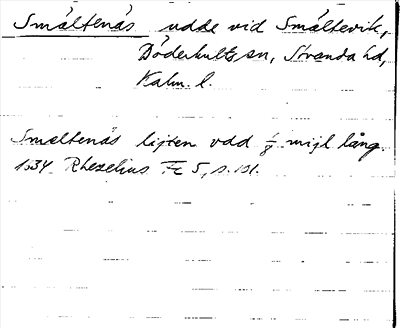 Smältenäs udde vid Smältevik,
Döderhults sn, Stranda hd,
Kalm. l.
Smæltenäs lijten vdd 1/8 mijl lång.
1634 Rhezelius Fc 5, s. 101.